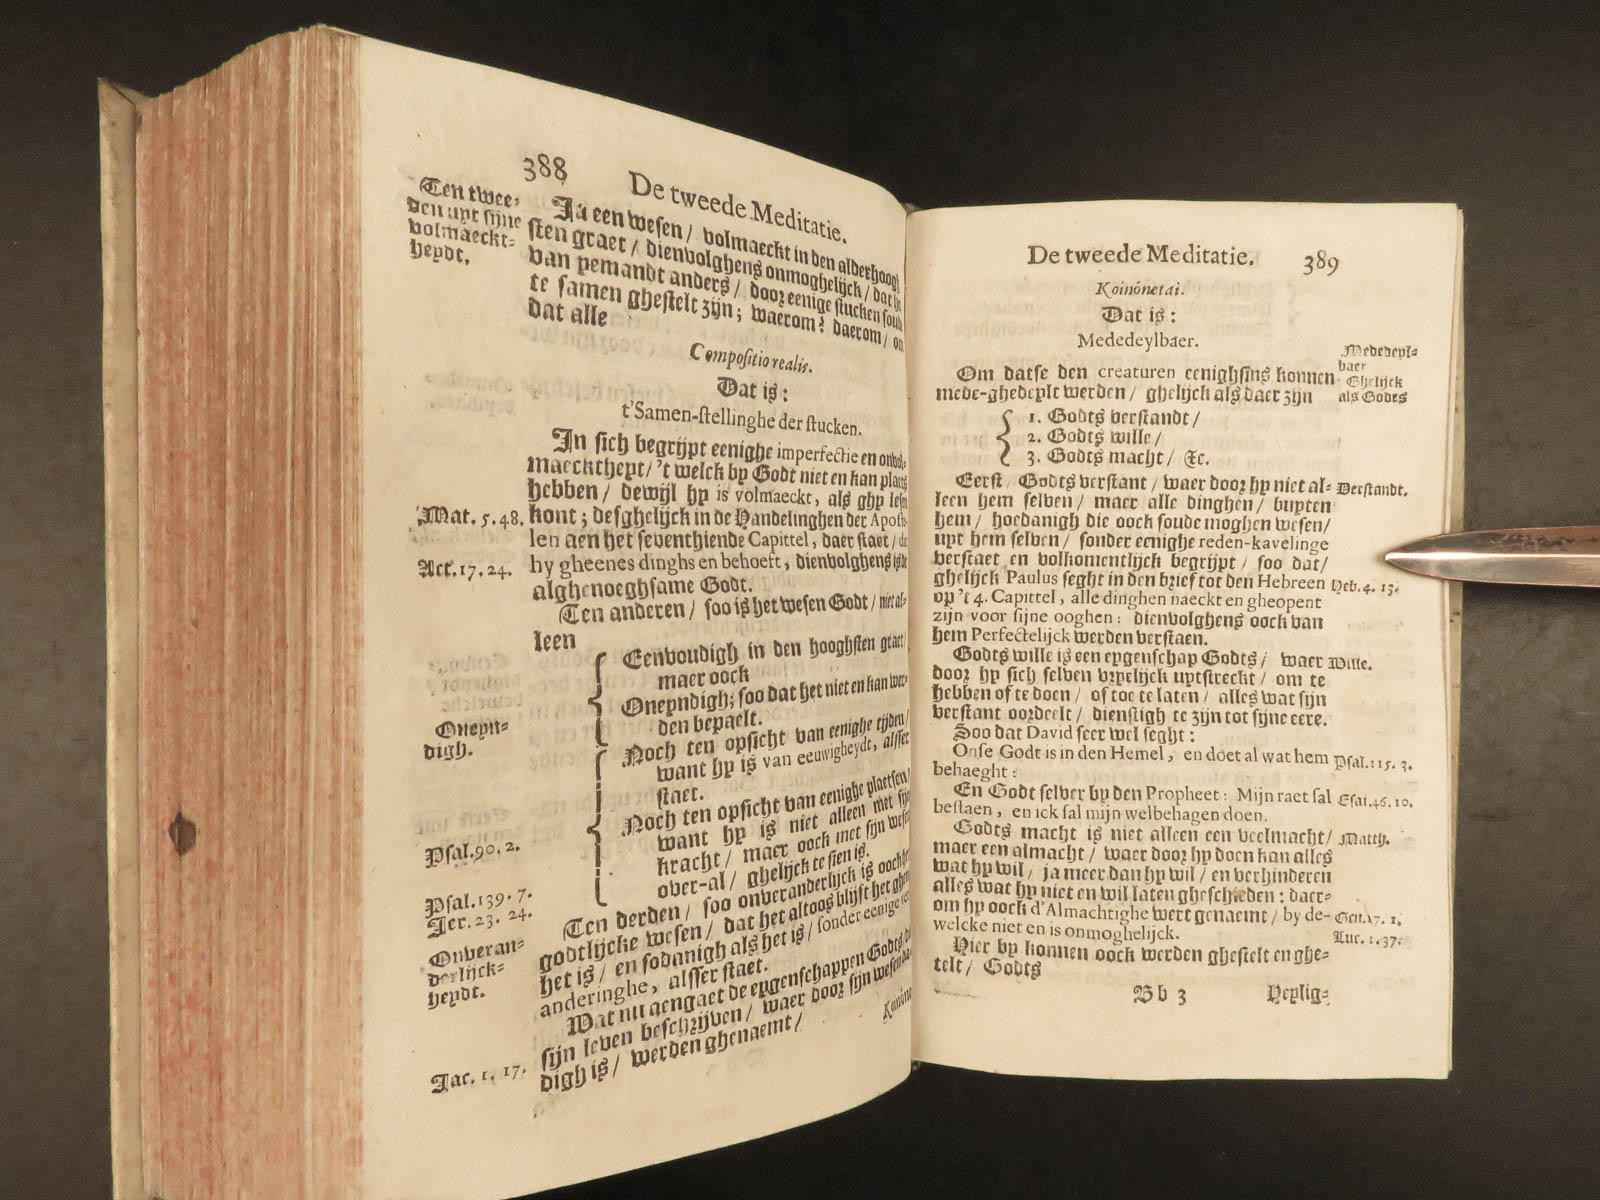 388
De tweede Meditatie.
Ten twee-
den uyt sijne
volmaeckt-
heydt.
Ja een wesen / volmaeckt in den alderhoogh
sten graet / dienvolghens onmoghelijck / dat
van yemandt anders / door eenige stucken soud
te samen ghestelt zijn; waerom? daerom / om
dat alle
Compositio realis.
Dat is:
t'Samen-stellinghe der stucken.
In sich begrijpt eenighe imperfectie en onvol-
maecktheyt / 't welck by Godt niet en kan plaets
hebben / dewijl hy is volmaeckt, als ghy lesen
Mat. 5. 48.
kont; desghelijck in de Handelinghen der Aposte-
len aen het seventhiende Capittel, daer staet / dat
Act. 17. 24.
hy gheenes dinghs en behoeft, dienvolghens is de
alghenoeghsame Godt.
Ten anderen / soo is het wesen Godt / niet al-
leen
Eenvoudigh in den hooghsten graet /
maer oock
Oneyn-
digh.
Oneyndigh; soo dat het niet en kan wer-
den bepaelt.
Noch ten opsicht van eenighe tijden /
want hy is van eeuwigheydt, alsser
staet.
Psal. 90. 2.
Noch ten opsicht van eenighe plaetsen /
want hy is niet alleen met sijn
kracht / maer oock met sijn wesen
over-al / ghelijck te sien is.
Psal. 139. 7.
Jer. 23. 24.
Onveran-
derlijck-
heydt.
Ten derden / soo onveranderlijck is oock
godtlijcke wesen / dat het altoos blijft het ghen
het is / en sodanigh als het is / sonder eenige ver
anderinghe, alsser staet.
Jac. 1. 17.
Wat nu aengaet de eygenschappen Godts
sijn leven beschrijven / waer door sijn wesen
digh is / werden ghenaemt /
Koinóne
De tweede Meditatie.
389
Koinónetai.
Dat is:
Mededeylbaer.
Mededeyl-
baer
Ghelijck
als Godts
Om datse den creaturen eenighsins konnen
mede-ghedeylt werden / ghelijck als daer zijn
1. Godts verstandt /
2. Godts wille /
3. Godts macht / &c.
Eerst / Godts verstant / waer door hy niet al-
Verstandt.
leen hem selven / maer alle dinghen / buyten
hem / hoedanigh die oock soude moghen wesen /
uyt hem selven / sonder eenighe reden-kavelinge
verstaet en volkomentlijck begrijpt / soo dat /
ghelijck Paulus seght in den brief tot den Hebreen
Heb. 4. 13.
op 't 4. Capittel, alle dinghen naeckt en gheopent
zijn voor sijne ooghen: dienvolghens oock van
hem Perfectelijck werden verstaen.
Godts wille is een eygenschap Godts / waer
Wille.
door hy sich selven vryelijck uytstreckt / om te
hebben of te doen / of toe te laten / alles wat sijn
verstant oordeelt / dienstigh te zijn tot sijne eere.
Soo dat David seer wel seght:
Onse Godt is in den Hemel, en doet al wat hem
Psal. 115. 3.
behaeght:
En Godt selver by den Propheet: Mijn raet sal
Esai. 46. 10.
bestaen, en ick sal mijn welbehagen doen.
Godts macht is niet alleen een veelmacht /
Macht.
maer een almacht / waer door hy doen kan alles
wat hy wil / ja meer dan hy wil / en verhinderen
alles wat hy niet en wil laten gheschieden: daer-
om hy oock d'Almachtighe wert genaemt / by de-
Gen. 17. 1.
welcke niet en is onmoghelijck.
Luc. 1. 37.
Hier by konnen oock werden ghestelt en ghe-
telt / Godts
Bb 3
Heylig-